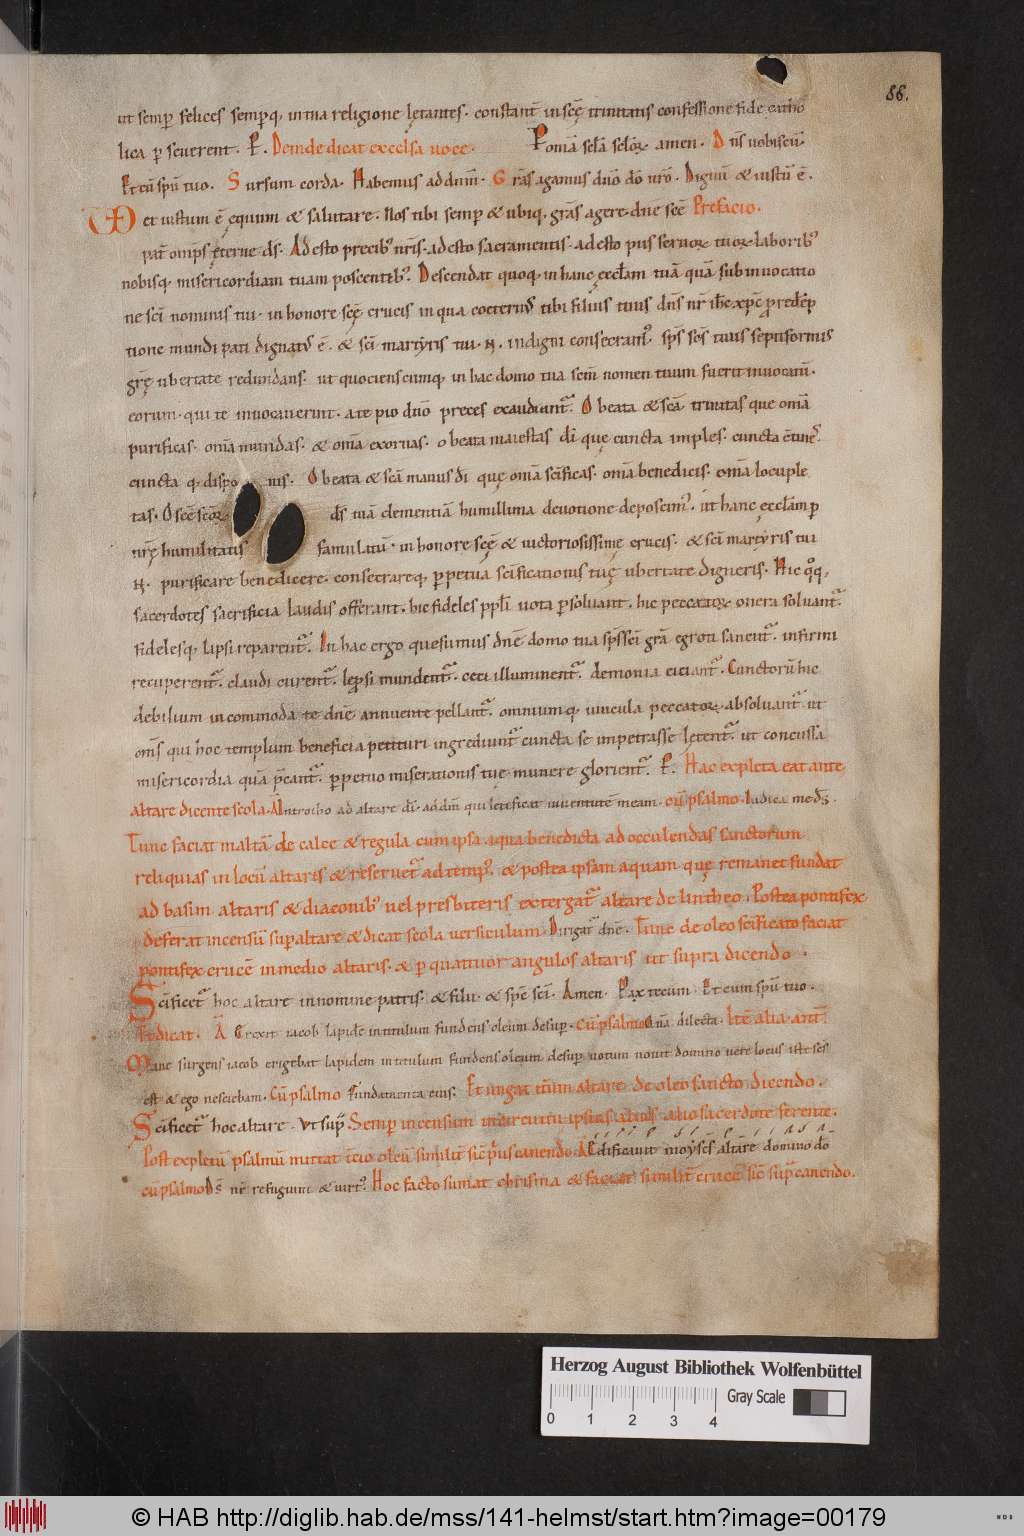 86.
ut semp̄ felices semp̄q, in tua religione lętantes. constant̄ in scę trinitatis confessione fide catho
lica p seuerent. P. Deinde dicat excelsa uoce. P omīa scl̄a scloꝝ amen. D n̄s uobiscū.
Et cū spū tuo. S ursum corda. Habemus ad dn̄m. G rās agamus dn̄o dō nr̄o. Dignū & iustū ē.
et iustum ē equum & salutare. Nos tibi semp & ubiq, grās agere. dn̄e scē Prefacio.
pat̄ om̄ps ęterne ds̄. Adesto precib; nr̄is. adesto sacramentis. adesto piis seruoꝝ tuoꝝ laborib;
nobisq, misericordiam tuam poscentib;. Descendat quoq, in hanc ęccl̄am tuā quā sub inuocatio
ne scī nominis tui. in honore scę crucis in qua coęternus tibi filius tuus dn̄s nr̄ ih̄c xp̄c p redēp
tione mundi pati dignat; ē. & scī martyris tui. N. indigni consecram;. sp̄s scs̄ tuus septiformis
gr̄ę ubertate redundans. ut quocienscumq, in hac domo tua scm̄ nomen tuum fuerit inuocatū.
eorum. qui te inuocauerint. a te pio dn̄o preces exaudiant᷑. O beata & scā trinitas que omīa
purificas. omīa mundas. & omīa exornas. o beata maiestas dī que cuncta imples. cuncta ctines.
cuncta q, dispo nis. O beata & scā manus dī quę omīa scīficas. omīa benedicis. omīa locuple
tas. O scē scōꝝ ds̄ tuā clementiā humillima deuotione deposcim;. ut hanc ęccl̄am p
nr̄ę humilitatis famulatū. in honore scę & uictoriosissimę crucis. & scī martyris tui
N. purificare benedicere. consecrareq, ppetua scīficationis tuę ubertate digneris. Hic qq,
sacerdotes sacrificia laudis offerant. hic fideles ppl̄i uota psoluant. hic peccatoꝝ onera soluant᷑.
fidelesq, lapsi reparent᷑. In hac ergo quesumus dn̄e domo tua sp̄s scī grā egroti sanent᷑. infirmi
recuperent᷑. claudi curent᷑. leprosi mundent᷑. ceci illuminent᷑. demonia eiciant᷑. Cunctorū hic
debilium incommoda te dn̄e annuente pellant᷑. omniumq, uincula peccatoꝝ absoluant᷑. ut
om̄s qui hoc templum beneficia petituri ingrediunt᷑ cuncta se impetrasse lętent᷑. ut concessa
misericordia quā pcant᷑. ppetuo miserationis tuę munere glorient᷑. P. Hac expleta eat ante
altare dicente scola. Ā Introibo ad altare dī. ad dm̄ qui letificat iuuentutē meam. cū psalmo. Iudica me ds̄.
Tunc faciat maltā de calce & regula cum ipsa aqua benedicta ad occulendas sanctorum
reliquias in locū altaris & reseruet᷑ ad temp;. & postea ipsam aquam quę remanet fundat
ad basim altaris & diaconib; uel presbiteris extergat᷑ altare de lintheo. Postea pontifex
deferat incensū sup altare & dicat scola uersiculum. Dirigat᷑ dn̄e. Tunc de oleo scīficato faciat
pontifex crucē in medio altaris. & p quattuor angulos altaris ut supra dicendo.
Scīficet᷑ hoc altare in nomine patris. & filii. & sp̄s scī. Amen. Pax tecum. Et cum sp̄u tuo.
Et dicat. Ā Erexit iacob lapidē in titulum fundens oleum desup. Cū psalmo. Quā dilecta. Itē alia ant̄.
Mane surgens iacob erigebat lapidem in titulum fundens oleum desup uotum uouit domino uere locus iste scs̄
est & ego nesciebam. Cū psalmo Fundamenta eius. Et ungat itm̄ altare de oleo sancto dicendo.
Scīficet᷑ hoc altare. Ut sup̄. Semp incensum in circuitu ipsius altaris alio sacerdote ferente.
Post expletū psalmū mittat itero oleū similit̄ sic prius canendo. A Edificauit moyses altare domino dō
cū psalmo Ds̄ nr̄ refugium & uirt;. Hoc facto sumat chrisma & faciat similit̄ crucē sic sup̄ canendo.
Herzog August Bibliothek Wolfenbüttel
0 1 2 3 4 Gray Scale
© HAB http://diglib.hab.de/mss/141-helmst/start.htm?image=00179